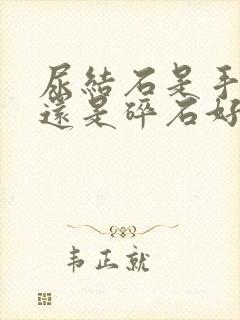 尿結石是手
還是碎石好
韦正就